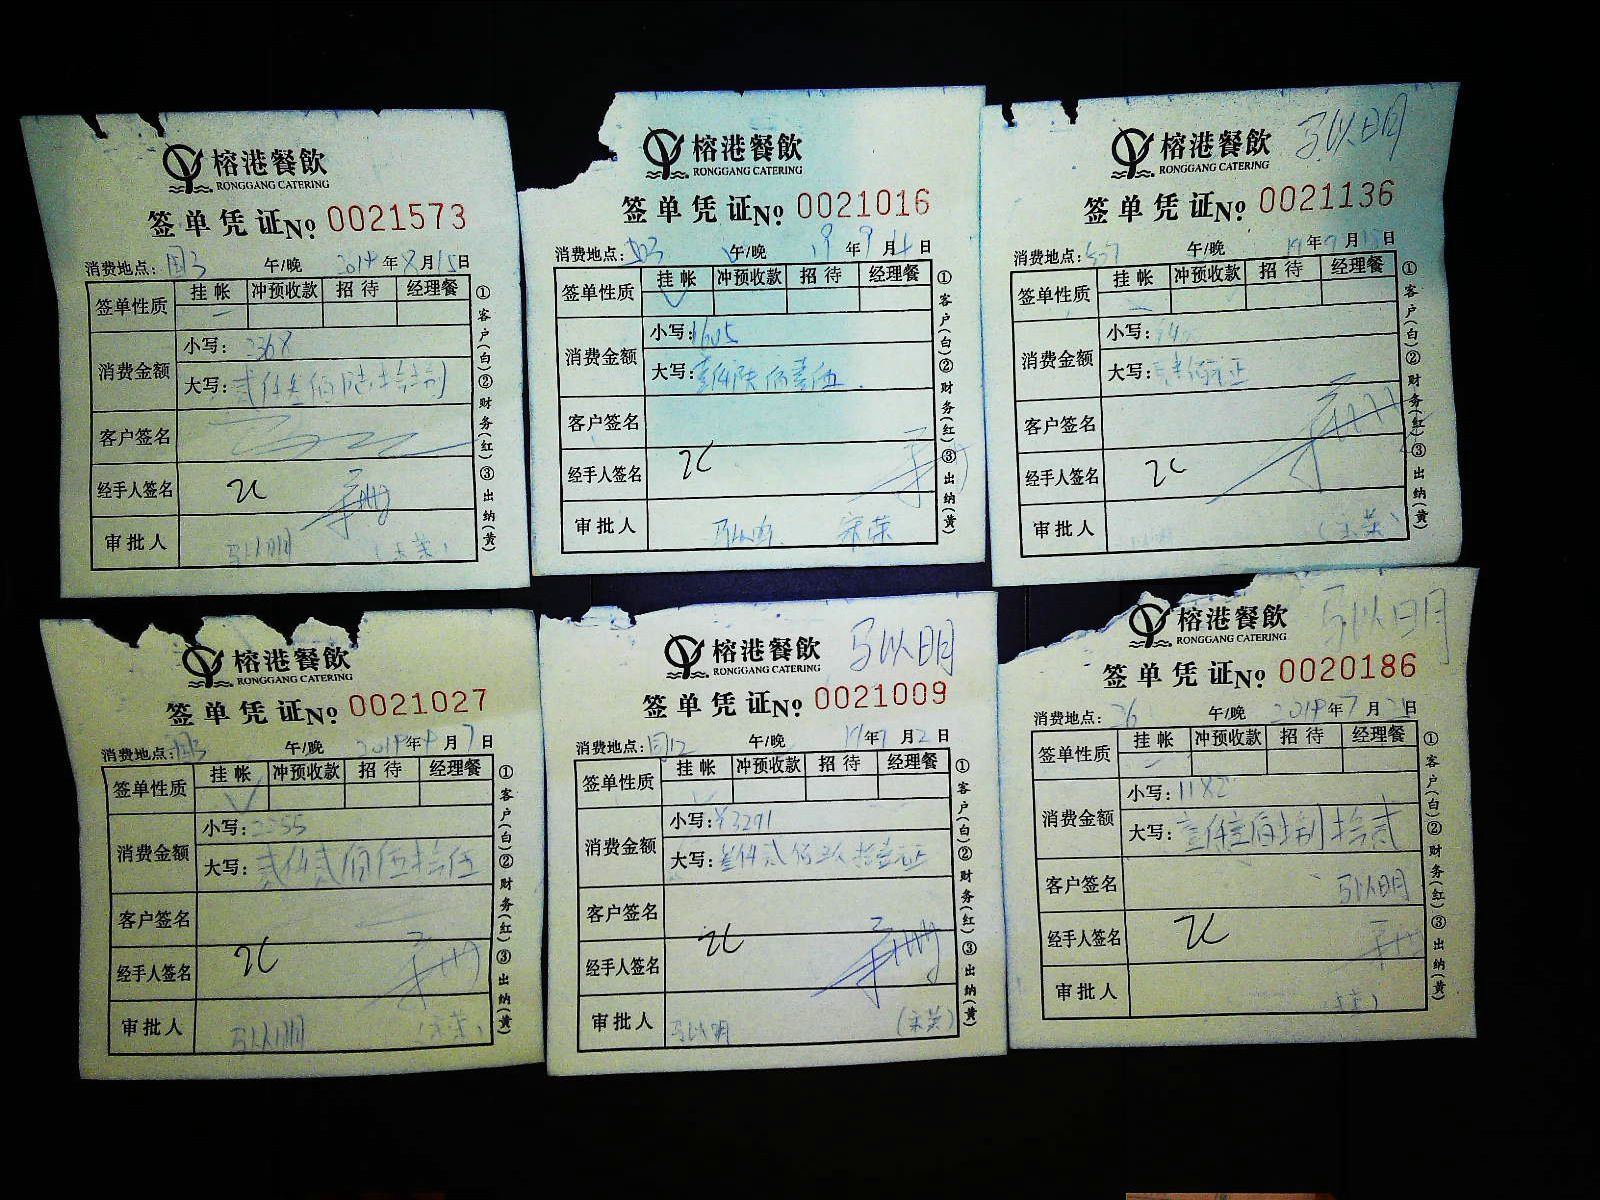 榕港餐飲
RONGGANG CATERING
签单凭证No 0021573
消费地点: 午/晚 年 月15日
签单性质 挂帐 冲预收款 招待 经理餐
消费金额
小写: 2368
大写: 贰仟叁佰陆拾捌
客户签名
经手人签名
审批人 马以明 (宋荣)
①客户(白)②财务(红)③出纳(黄)
榕港餐飲
RONGGANG CATERING
签单凭证No 0021016
消费地点: 午/晚 19年9月 日
签单性质 挂帐 冲预收款 招待 经理餐
消费金额
小写: 1605
大写: 壹仟陆佰零伍
客户签名
经手人签名
审批人 马以明 宋荣
①客户(白)②财务(红)③出纳(黄)
榕港餐飲 马以明
RONGGANG CATERING
签单凭证No 0021136
消费地点: 午/晚 年 月 日
签单性质 挂帐 冲预收款 招待 经理餐
消费金额
小写:
大写:
客户签名
经手人签名
审批人 (宋荣)
①客户(白)②财务(红)③出纳(黄)
榕港餐飲
RONGGANG CATERING
签单凭证No 0021027
消费地点: 午/晚 年 月7日
签单性质 挂帐 冲预收款 招待 经理餐
消费金额
小写: 2255
大写: 贰仟贰佰伍拾伍
客户签名
经手人签名
审批人 马以明 (宋荣)
①客户(白)②财务(红)③出纳(黄)
榕港餐飲 马以明
RONGGANG CATERING
签单凭证No 0021009
消费地点: 午/晚 年 月2日
签单性质 挂帐 冲预收款 招待 经理餐
消费金额
小写: ¥3291
大写: 叁仟贰佰玖拾壹元正
客户签名
经手人签名
审批人 马以明 (宋荣)
①客户(白)②财务(红)③出纳(黄)
榕港餐飲 马以明
RONGGANG CATERING
签单凭证No 0020186
消费地点: 26 午/晚 2019年7月 日
签单性质 挂帐 冲预收款 招待 经理餐
消费金额
小写: 1182
大写: 壹仟壹佰捌拾贰
客户签名 马以明
经手人签名
审批人 (宋荣)
①客户(白)②财务(红)③出纳(黄)